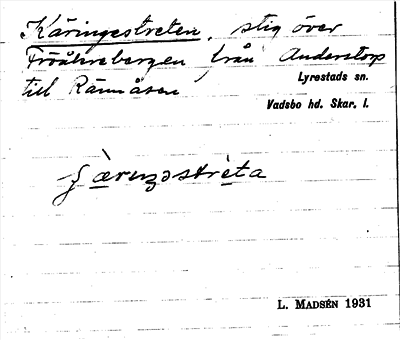 Käringestreten, stig över
Fröåkrebergen från Anderstorp
till Rännåsen
Lyrestads sn.
Vadsbo hd. Skar. l.
L. MADSÉN 1931